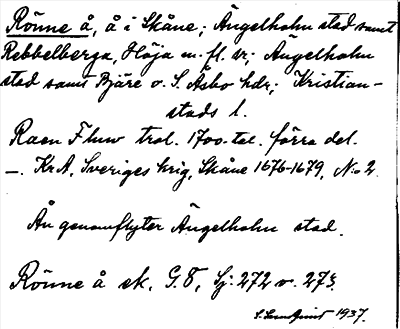 Rönne å, å i Skåne; Ängelholm stad samt
Rebbelberga, Höja m. fl. sr; Ängelholm
stad samt Bjäre o. S. Åsbo hdr; Kristian-
stads l.
Raen Fluw trol. 1700-tal. förra del.
—. KrA, Sveriges krig, Skåne 1676-1679, N:o 2.
Ån genomflyter Ängelholm stad.
Rönne å ek. G.8, Sj: 272 o. 273.
1937.